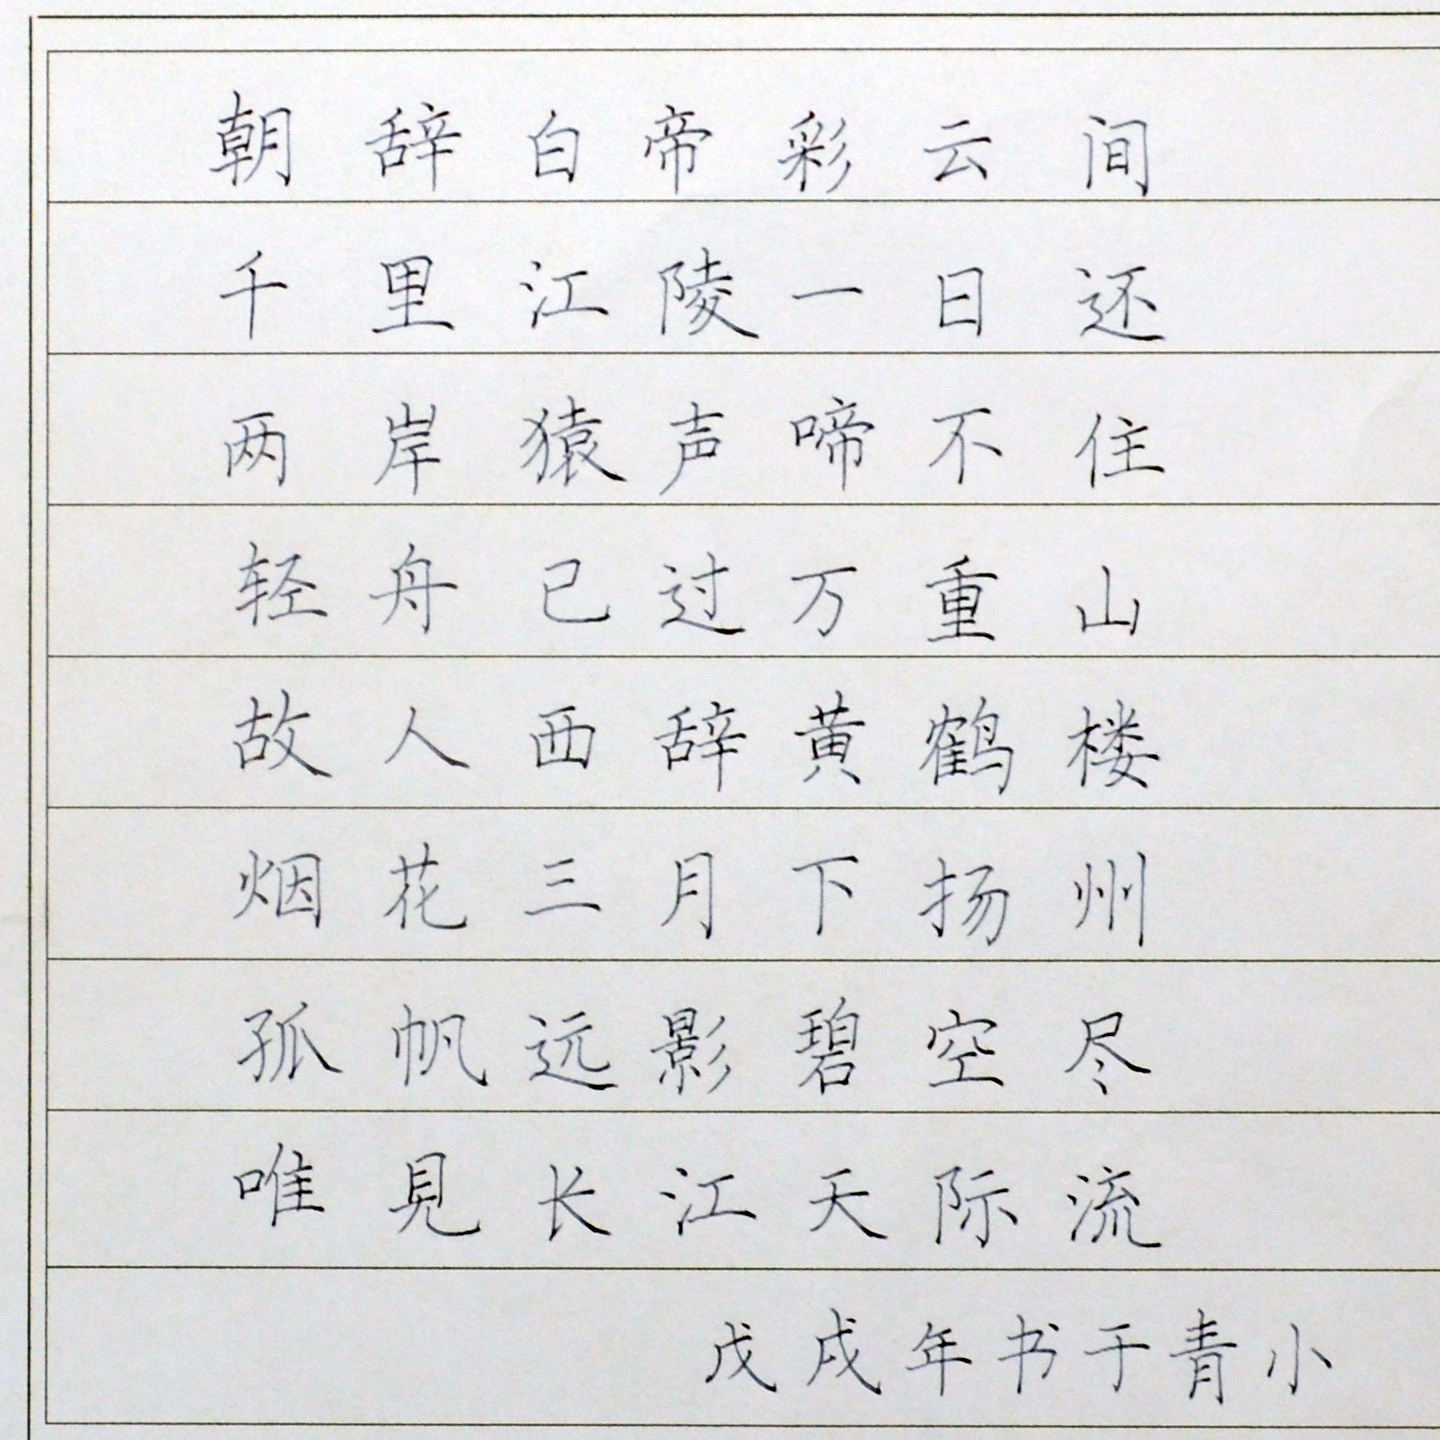 朝辞白帝彩云间
千里江陵一日还
两岸猿声啼不住
轻舟已过万重山
故人西辞黄鹤楼
烟花三月下扬州
孤帆远影碧空尽
唯見长江天际流
戊戌年书于青小